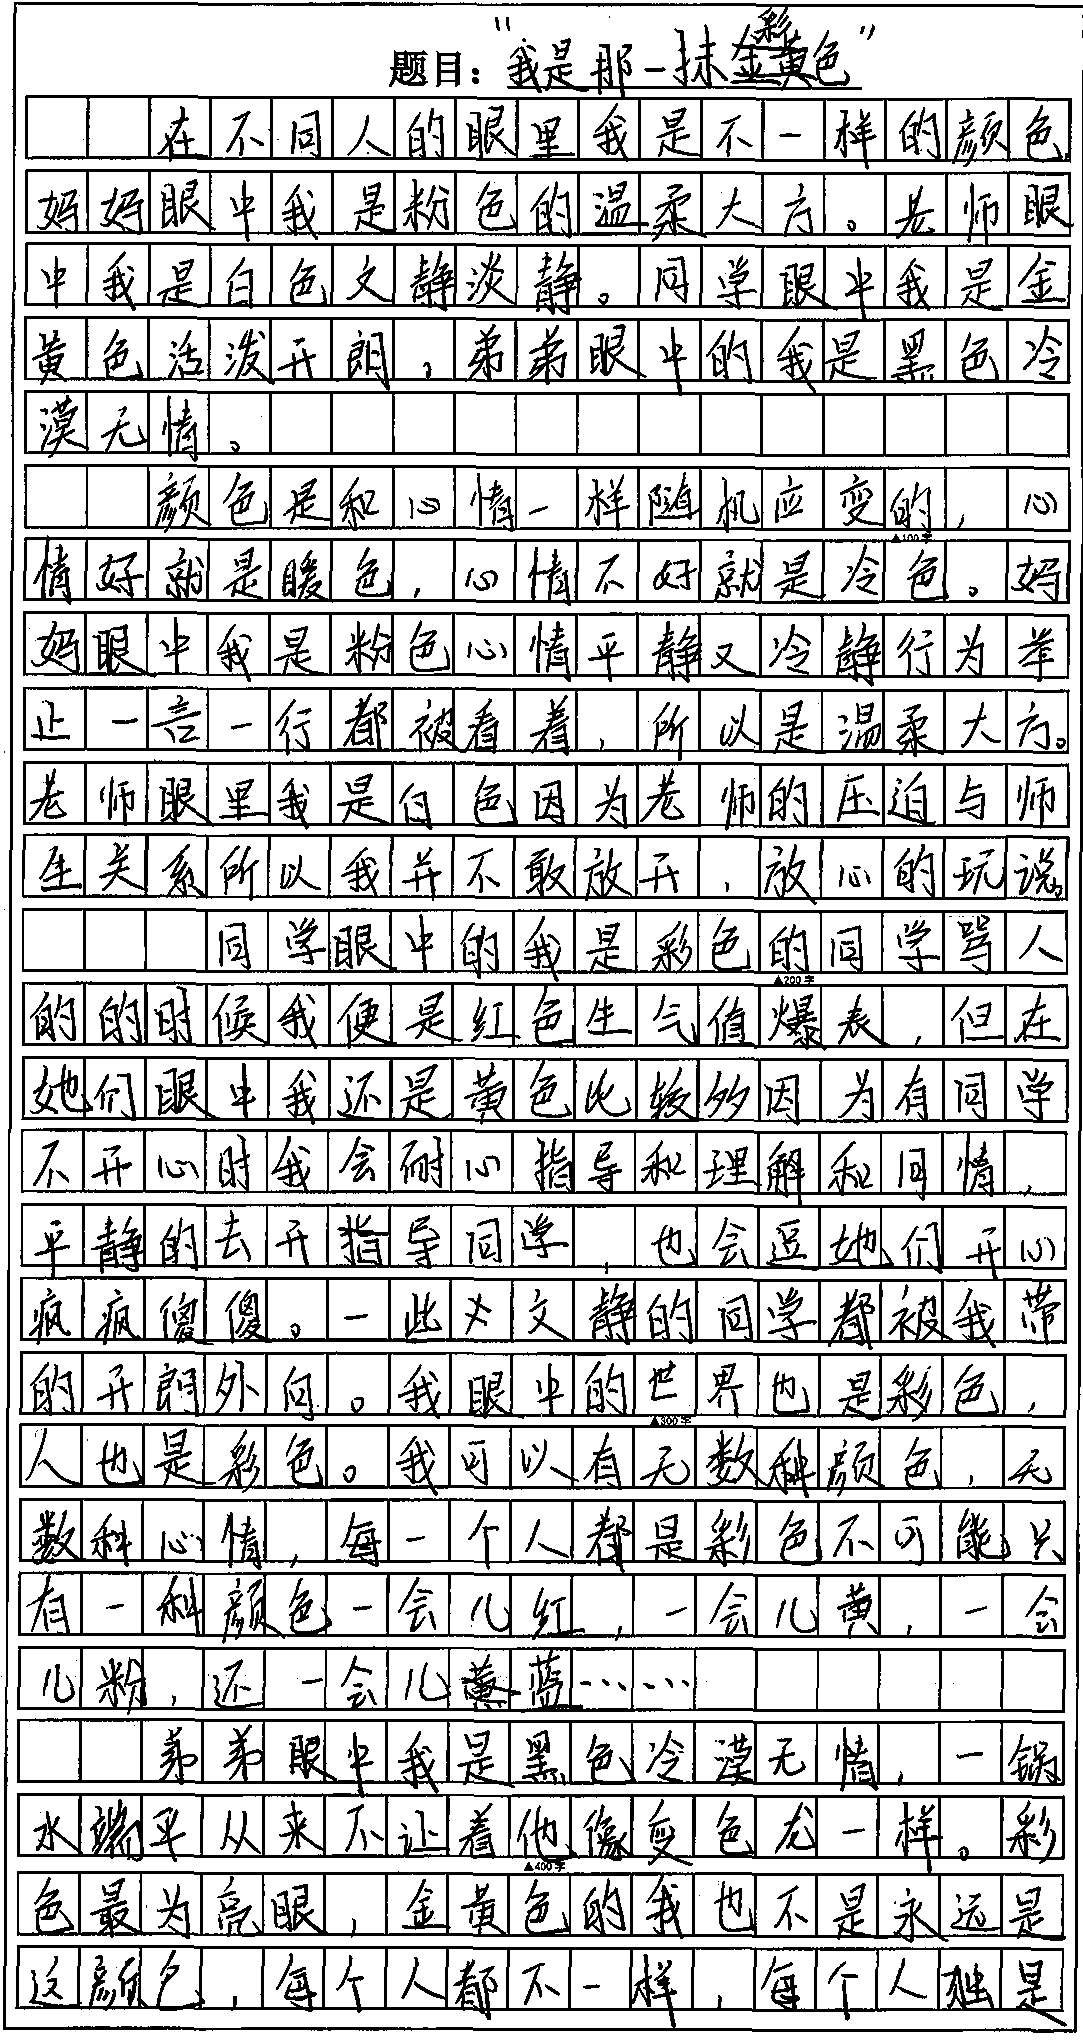 题目："我是那一抹金黄彩色"
在不同人的眼里我是不一样的颜色
妈妈眼中我是粉色的温柔大方。老师眼
中我是白色文静淡静。同学眼中我是金
黄色活泼开朗，弟弟眼中的我是黑色冷
漠无情。
颜色是和心情一样随机应变的，心
▲100字
情好就是暖色，心情不好就是冷色。妈
妈眼中我是粉色心情平静又冷静行为举
止一言一行都被看着，所以是温柔大方。
老师眼里我是白色因为老师的压迫与师
生关系所以我并不敢放开，放心的玩说。
同学眼中的我是彩色的同学骂人
▲200字
的的时候我便是红色生气值爆表，但在
她们眼中我还是黄色比较多因为有同学
不开心时我会耐心指导和理解和同情，
平静的去开指导同学，也会逗她们开心
疯疯傻傻。一些文静的同学都被我带
的开朗外向。我眼中的世界也是彩色，
▲300字
人也是彩色。我可以有无数种颜色，无
数种心情，每一个人都是彩色不可能只
有一种颜色一会儿红，一会儿黄，一会
儿粉，还一会儿蓝……
弟弟眼中我是黑色冷漠无情，一锅
水端平从来不让着他像变色龙一样。彩
▲400字
色最为亮眼，金黄色的我也不是永远是
这颜色，每个人都不一样，每个人独是